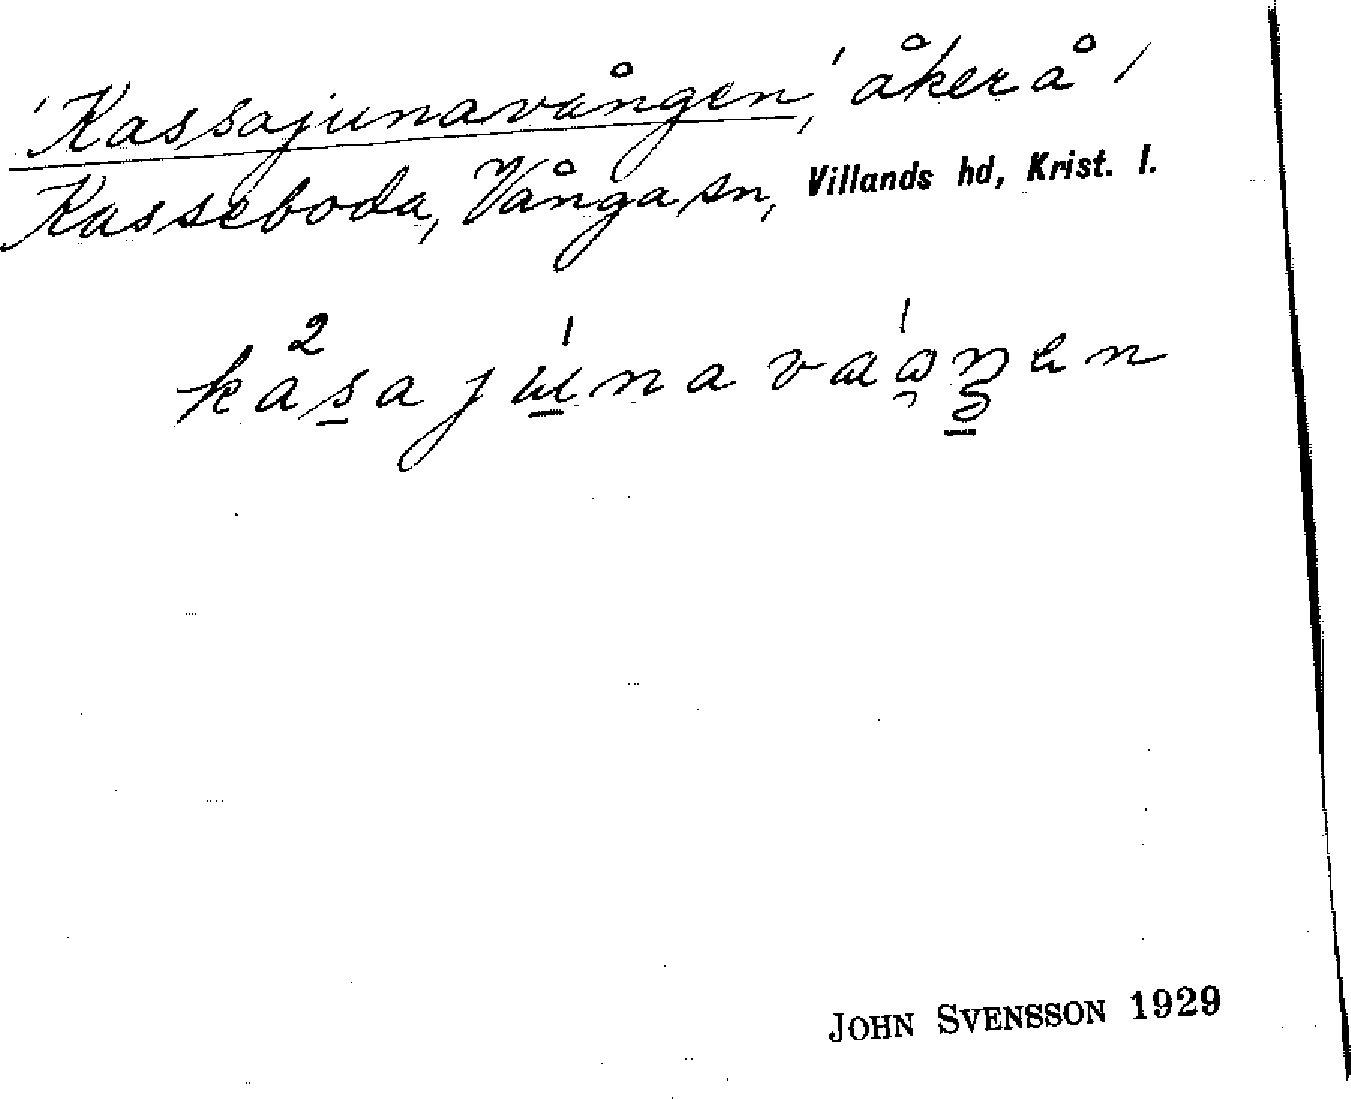 'Kassajunavången', åker å /
Kasseboda, Vånga sn, Villands hd, Krist. l.
JOHN SVENSSON 1929